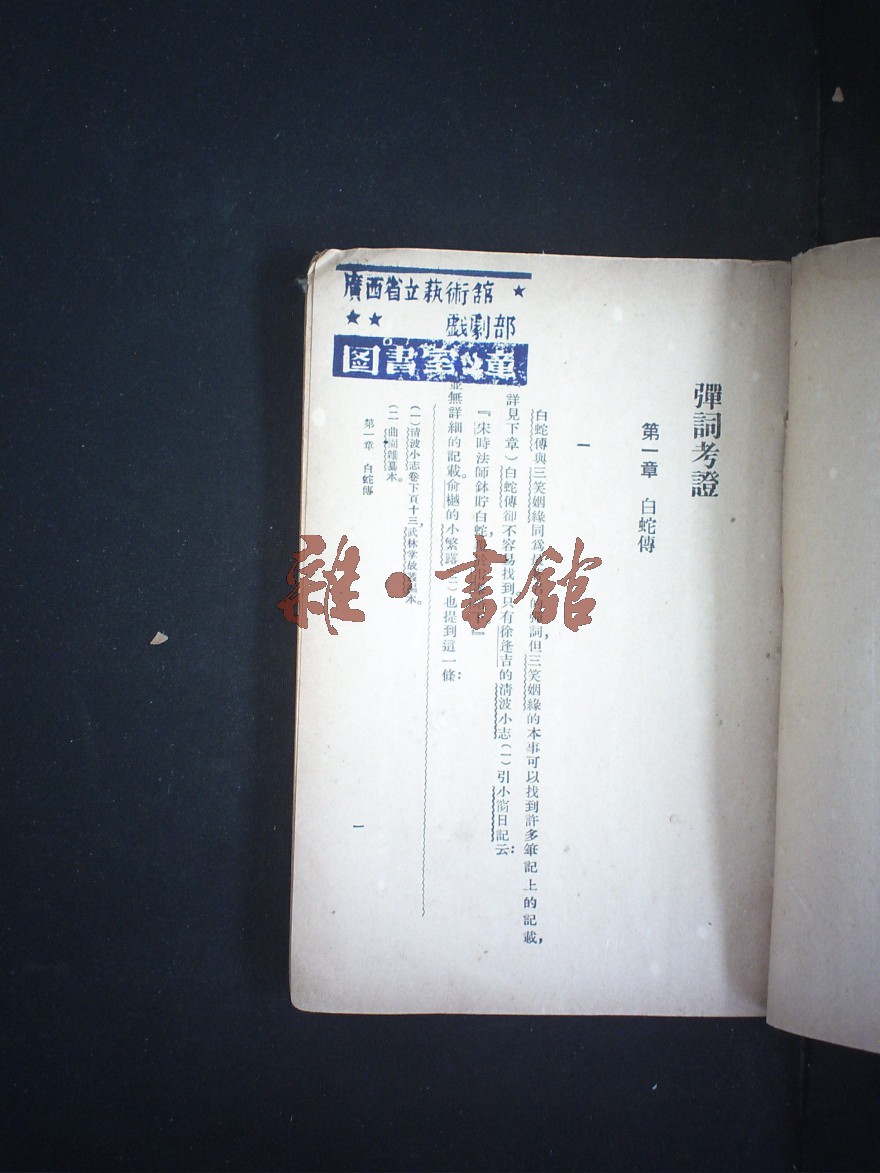 彈詞考證
第一章 白蛇傳
一
白蛇傳與三笑姻緣同爲
詞，但三笑姻緣的本事可以找到許多筆記上的記載，
詳見下章）白蛇傳卻不容易找到只有徐逢吉的清波小志（一）引小窗日記云：
『宋時法師鉢貯白蛇，
』
並無詳細的記載。俞樾的小繁露（二）也提到這一條：
（一）清波小志卷下頁十三，武林掌故叢編本。
（二）曲園雜纂本。
第一章 白蛇傳
一
廣西省立藝術館
戲劇部
圖書
雜·書館